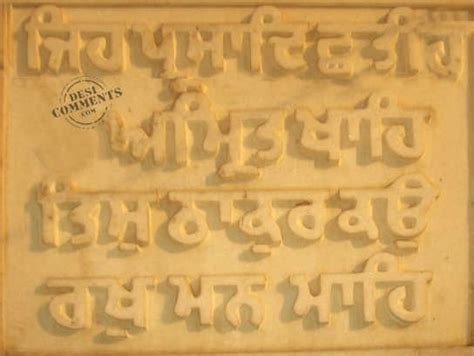 ਜਿਹ ਪ੍ਰਸਾਦਿ ਛਤੀਹ
DESI
COMMENTS
.COM
ਅੰਮ੍ਰਿਤ ਖਾਹਿ
ਤਿਸੁ ਠਾਕੁਰ ਕਉ
ਰਖੁ ਮਨ ਮਾਹਿ